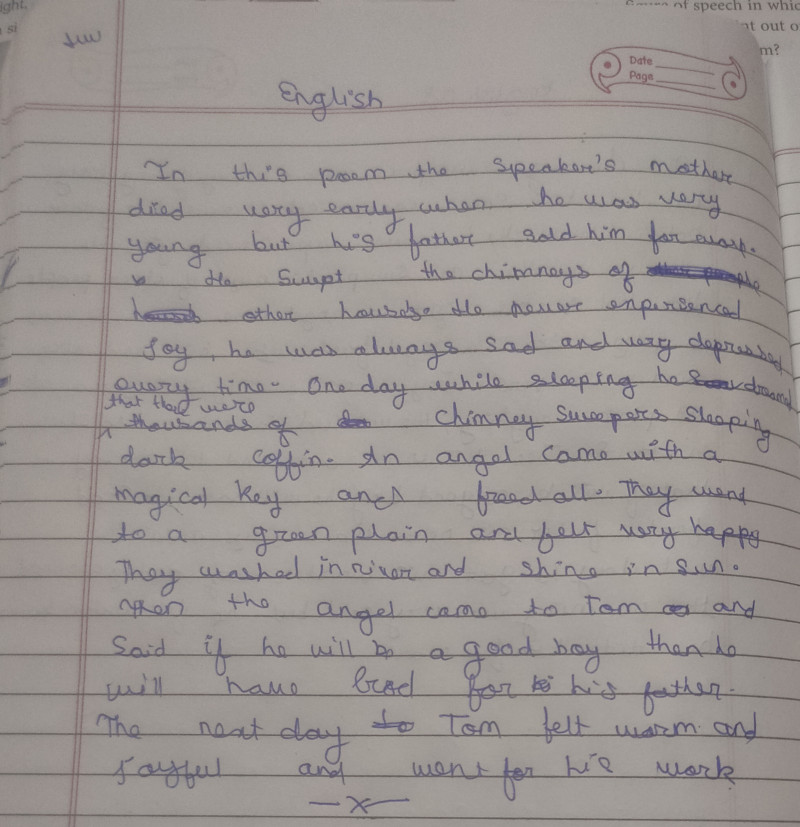 ight.
si
of speech in whic
nt out o
m?
Date
Page
English
In this poem the speaker's mother
died very early when he was very
young but his father sold him for work.
He Swept the chimneys of
other houses. He never expersenced
Joy, he was always sad and very depressed
every time. One day while sleeping he dreamed
that thea were
thousands of chimney sweepers sleeping
dark coffin. An angel came with a
magical key and freed all. They went
to a green plain and felt very happy
They washed in river and shine in sun.
Then the angel came to Tom and
Said if he will be a good boy then he
will have God for his father.
The next day Tom felt warm and
Joyful and went for his work
—x—